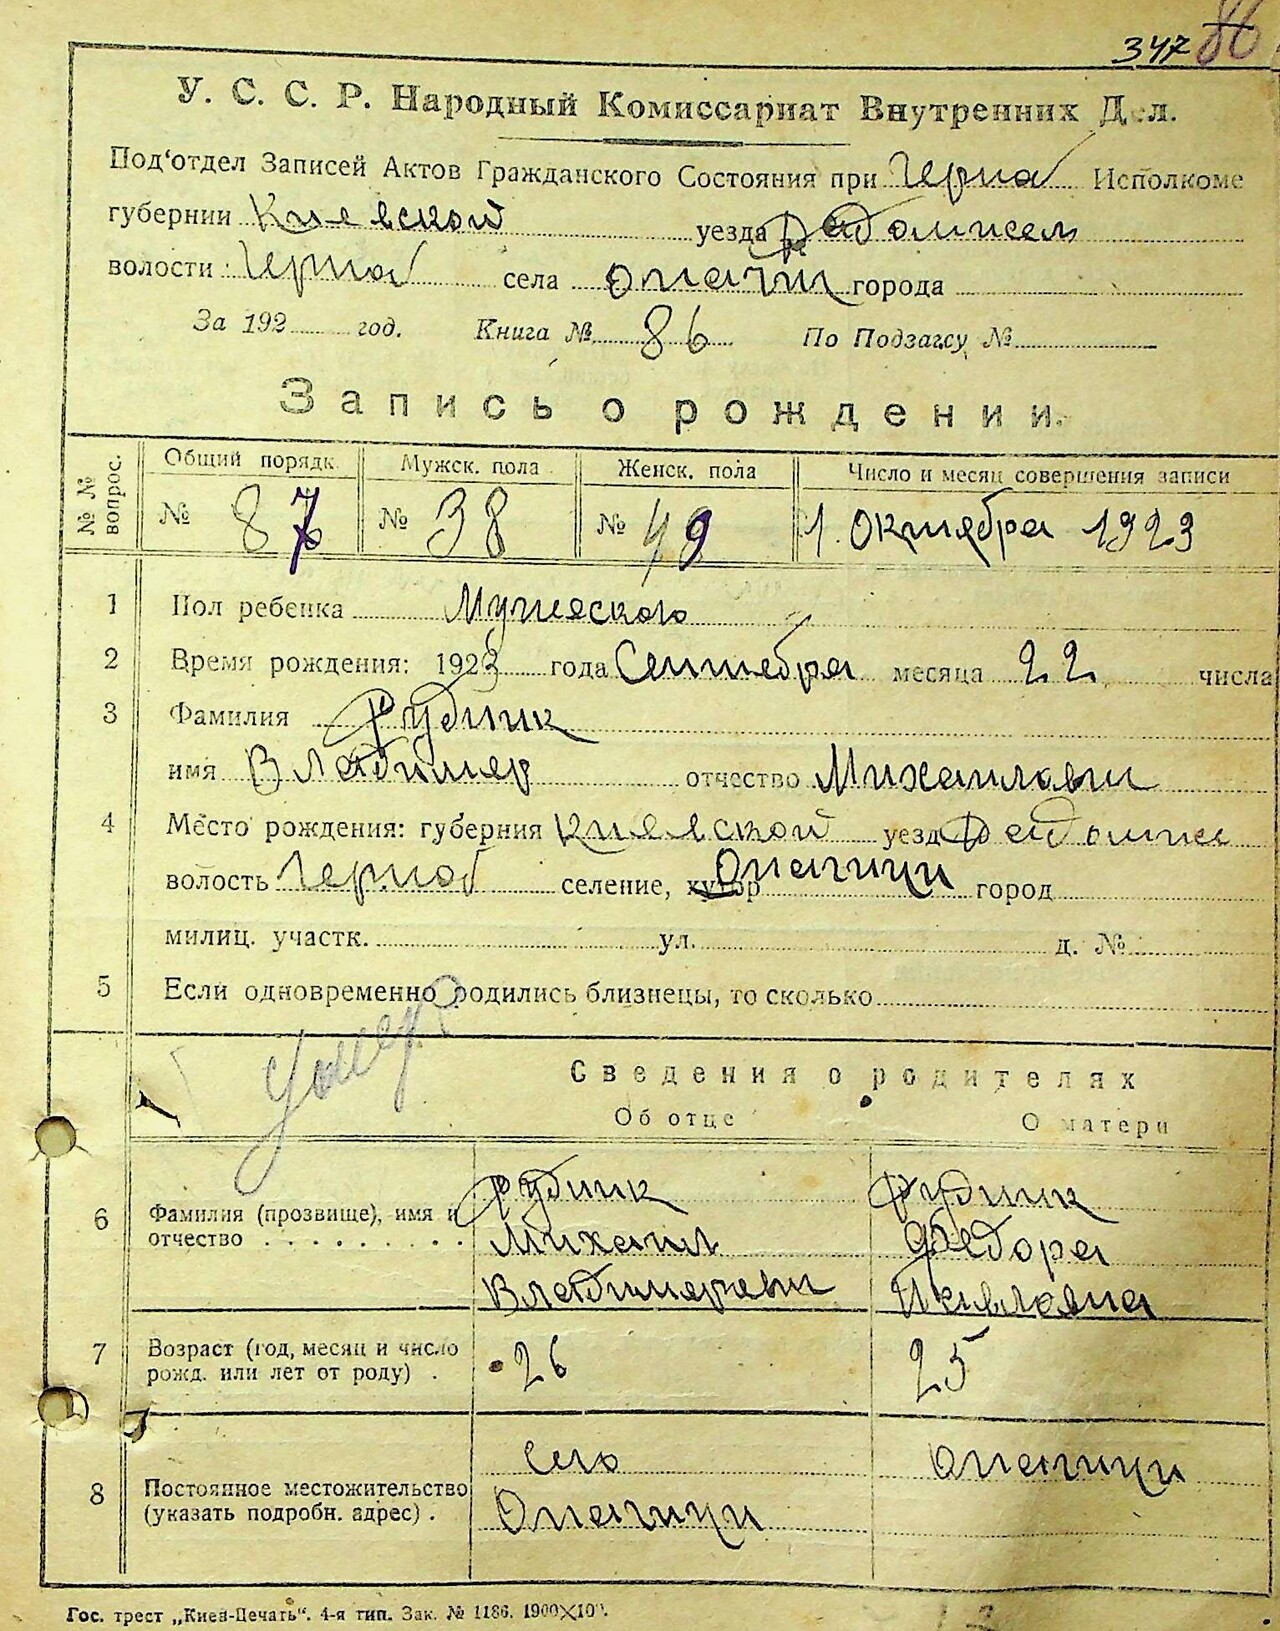 347 86
У. С. С. Р. Народный Комиссариат Внутренних Дел.
Под'отдел Записей Актов Гражданского Состояния при Черноб Исполкоме
губернии Киевской уезда Радомисл
волости Черноб села Опачичи города
За 192 год. Книга № 86 По Подзагсу №
Запись о рождении.
№ № вопрос. Общий порядк. Мужск. пола Женск. пола Число и месяц совершения записи
№ 87 № 38 № 49 1 Октября 1923
1 Пол ребенка Мужеского
2 Время рождения: 1923 года Сентебра месяца 22 числа
3 Фамилия Рудник
имя Владимер отчество Михаилович
4 Место рождения: губерния Киевской уезд Радомис
волость Черноб селение, хутор Опачичи город
милиц. участк. ул. д. №
5 Если одновременно родились близнецы, то сколько
Умер
Сведения о родителях
Об отце О матери
Рудник Рудник
6 Фамилия (прозвище), имя и отчество Михаил Федора
Владимерович Павловна
7 Возраст (год, месяц и число рожд. или лет от роду) . 26 25
Село Опачичи
8 Постоянное местожительство (указать подробн. адрес) . Опачичи
Гос. трест „Киев-Печать“. 4-я тип. Зак. № 1186. 1900×100.